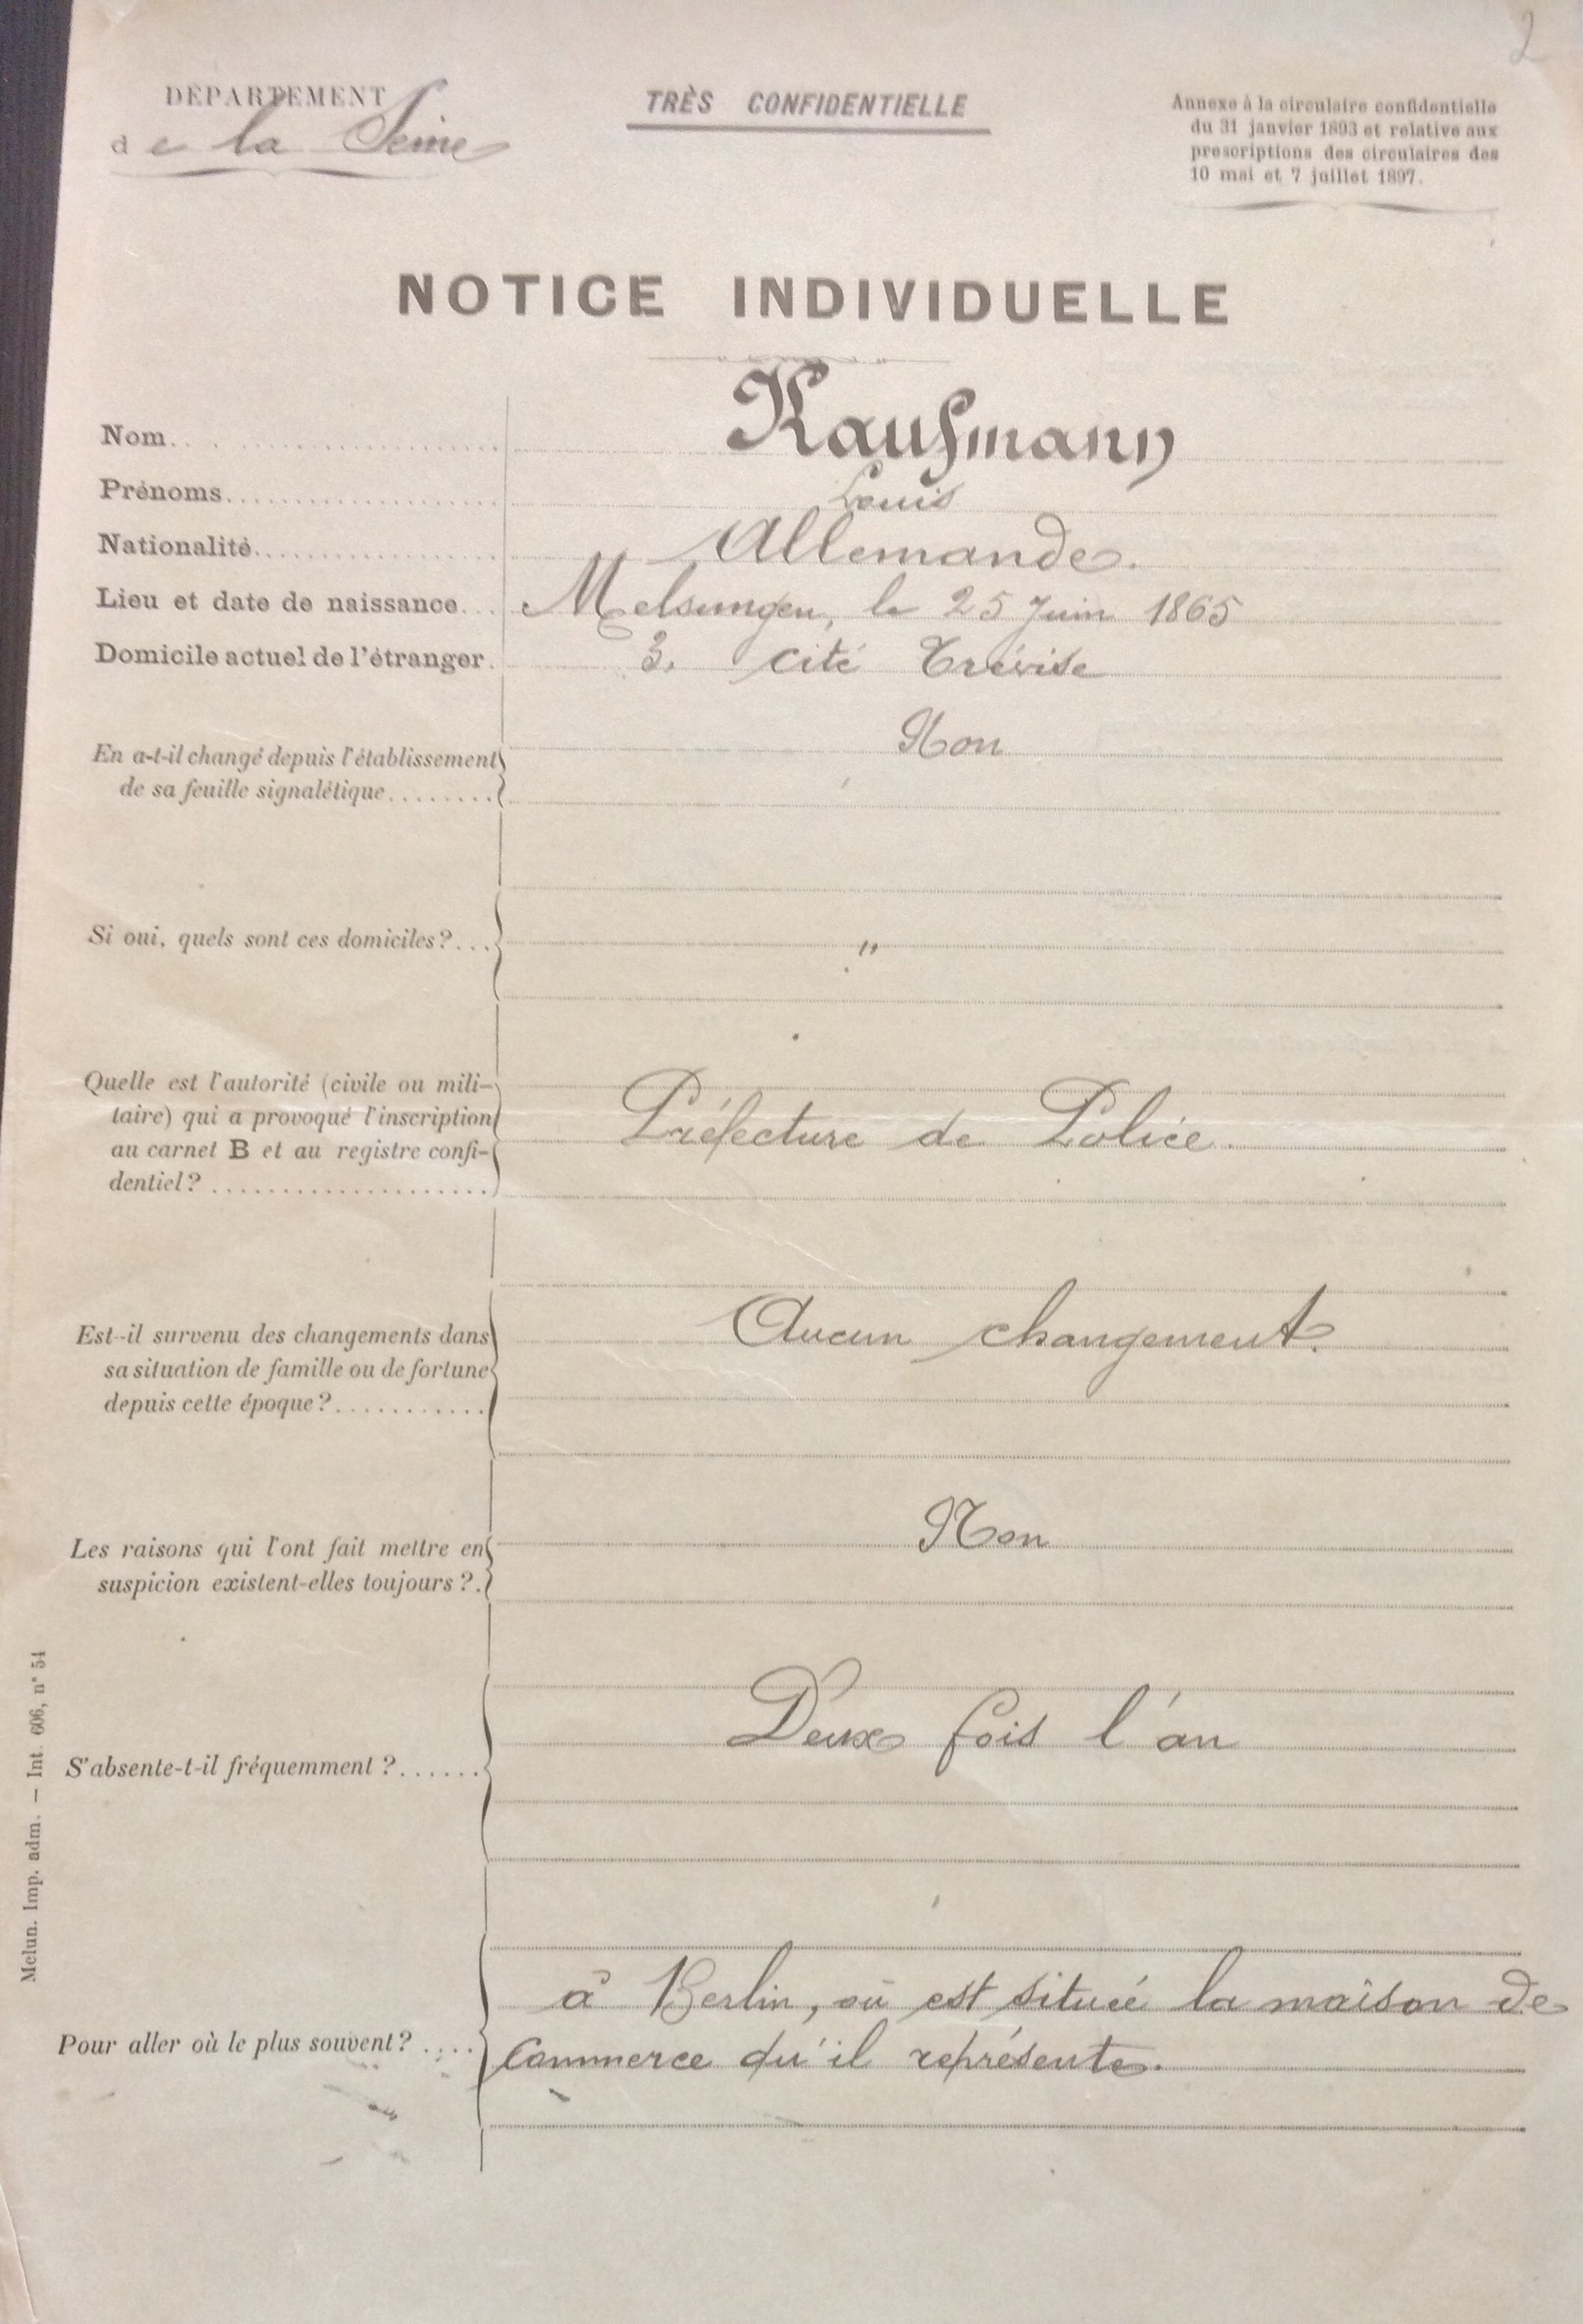 2
DÉPARTEMENT
de la Seine
TRÈS CONFIDENTIELLE
Annexe à la circulaire confidentielle
du 31 janvier 1893 et relative aux
prescriptions des circulaires des
10 mai et 7 juillet 1897.
NOTICE INDIVIDUELLE
Nom.. Kaufmann
Prénoms.................... Louis
Nationalité................. Allemande.
Lieu et date de naissance... Melsungen, le 25 Juin 1865
Domicile actuel de l'étranger. 3. cité Trévise
En a-t-il changé depuis l'établissement Non
de sa feuille signalétique........
Si oui, quels sont ces domiciles?... "
Quelle est l'autorité (civile ou mili-
taire) qui a provoqué l'inscription Préfecture de Police.
au carnet B et au registre confi-
dentiel? ....................
Est-il survenu des changements dans Aucun changement.
sa situation de famille ou de fortune
depuis cette époque?...........
Les raisons qui l'ont fait mettre en Non
suspicion existent-elles toujours?.
S'absente-t-il fréquemment?...... Deux fois l'an
Pour aller où le plus souvent? .... à Berlin, où est située la maison de
Commerce qu'il représente.
Melun. Imp. adm. — Int. 606, n° 54